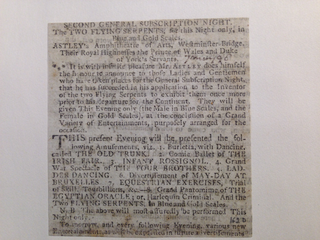 SECOND GENERAL SUBSCRIPTION NIGHT.
The TWO FLYING SERPENTS; for this Night only, in
Blue and Gold Scales.
ASTLEY's Amphitheatre of Arts, Westminster-Bridge.
Their Royal Highnesses the Prince of Wales and Duke
of York's Servants.
It is with infinite pleasure Mr. ASTLEY does himself
the honour to announce to those Ladies and Gentlemen
who have taken places for the General Subscription Night,
that he has succeeded in his application to the Inventor
of the two Flying Serpents to exhibit them once more
prior to his departure for the Continent. They will be
given This Evening only (the Male in Blue Scales, and the
Female in Gold Scales), as the conclusion of a Grand
Variety of Entertainments, purposely arranged for the
occasion.
THIS present Evening will be presented the fol-
lowing Amusements, viz. 1. Burletta, with Dancing,
called THE OLD TRUNK: 2. Comic Ballet of THE
IRISH FAIR. 3. INFANT ROSSIGNOL. 4. Grand
War Spectacle of THE FOUR BROTHERS. 5. LAD-
DER DANCING. 6. Divertisement of MAY-DAY AT
BRUXELLES. 7. EQUESTRIAN EXERCISES, Trial
of Skill, Tumbling, &c. 8. Grand Pantomime of THE
EGYPTIAN ORACLE; or, Harlequin Criminal. And the
Two FLYING SERPENTS, in Blue and Gold Scales.
N. B. The above will most assuredly be performed This
Night only.
To-morrow, and every following Evening, various new